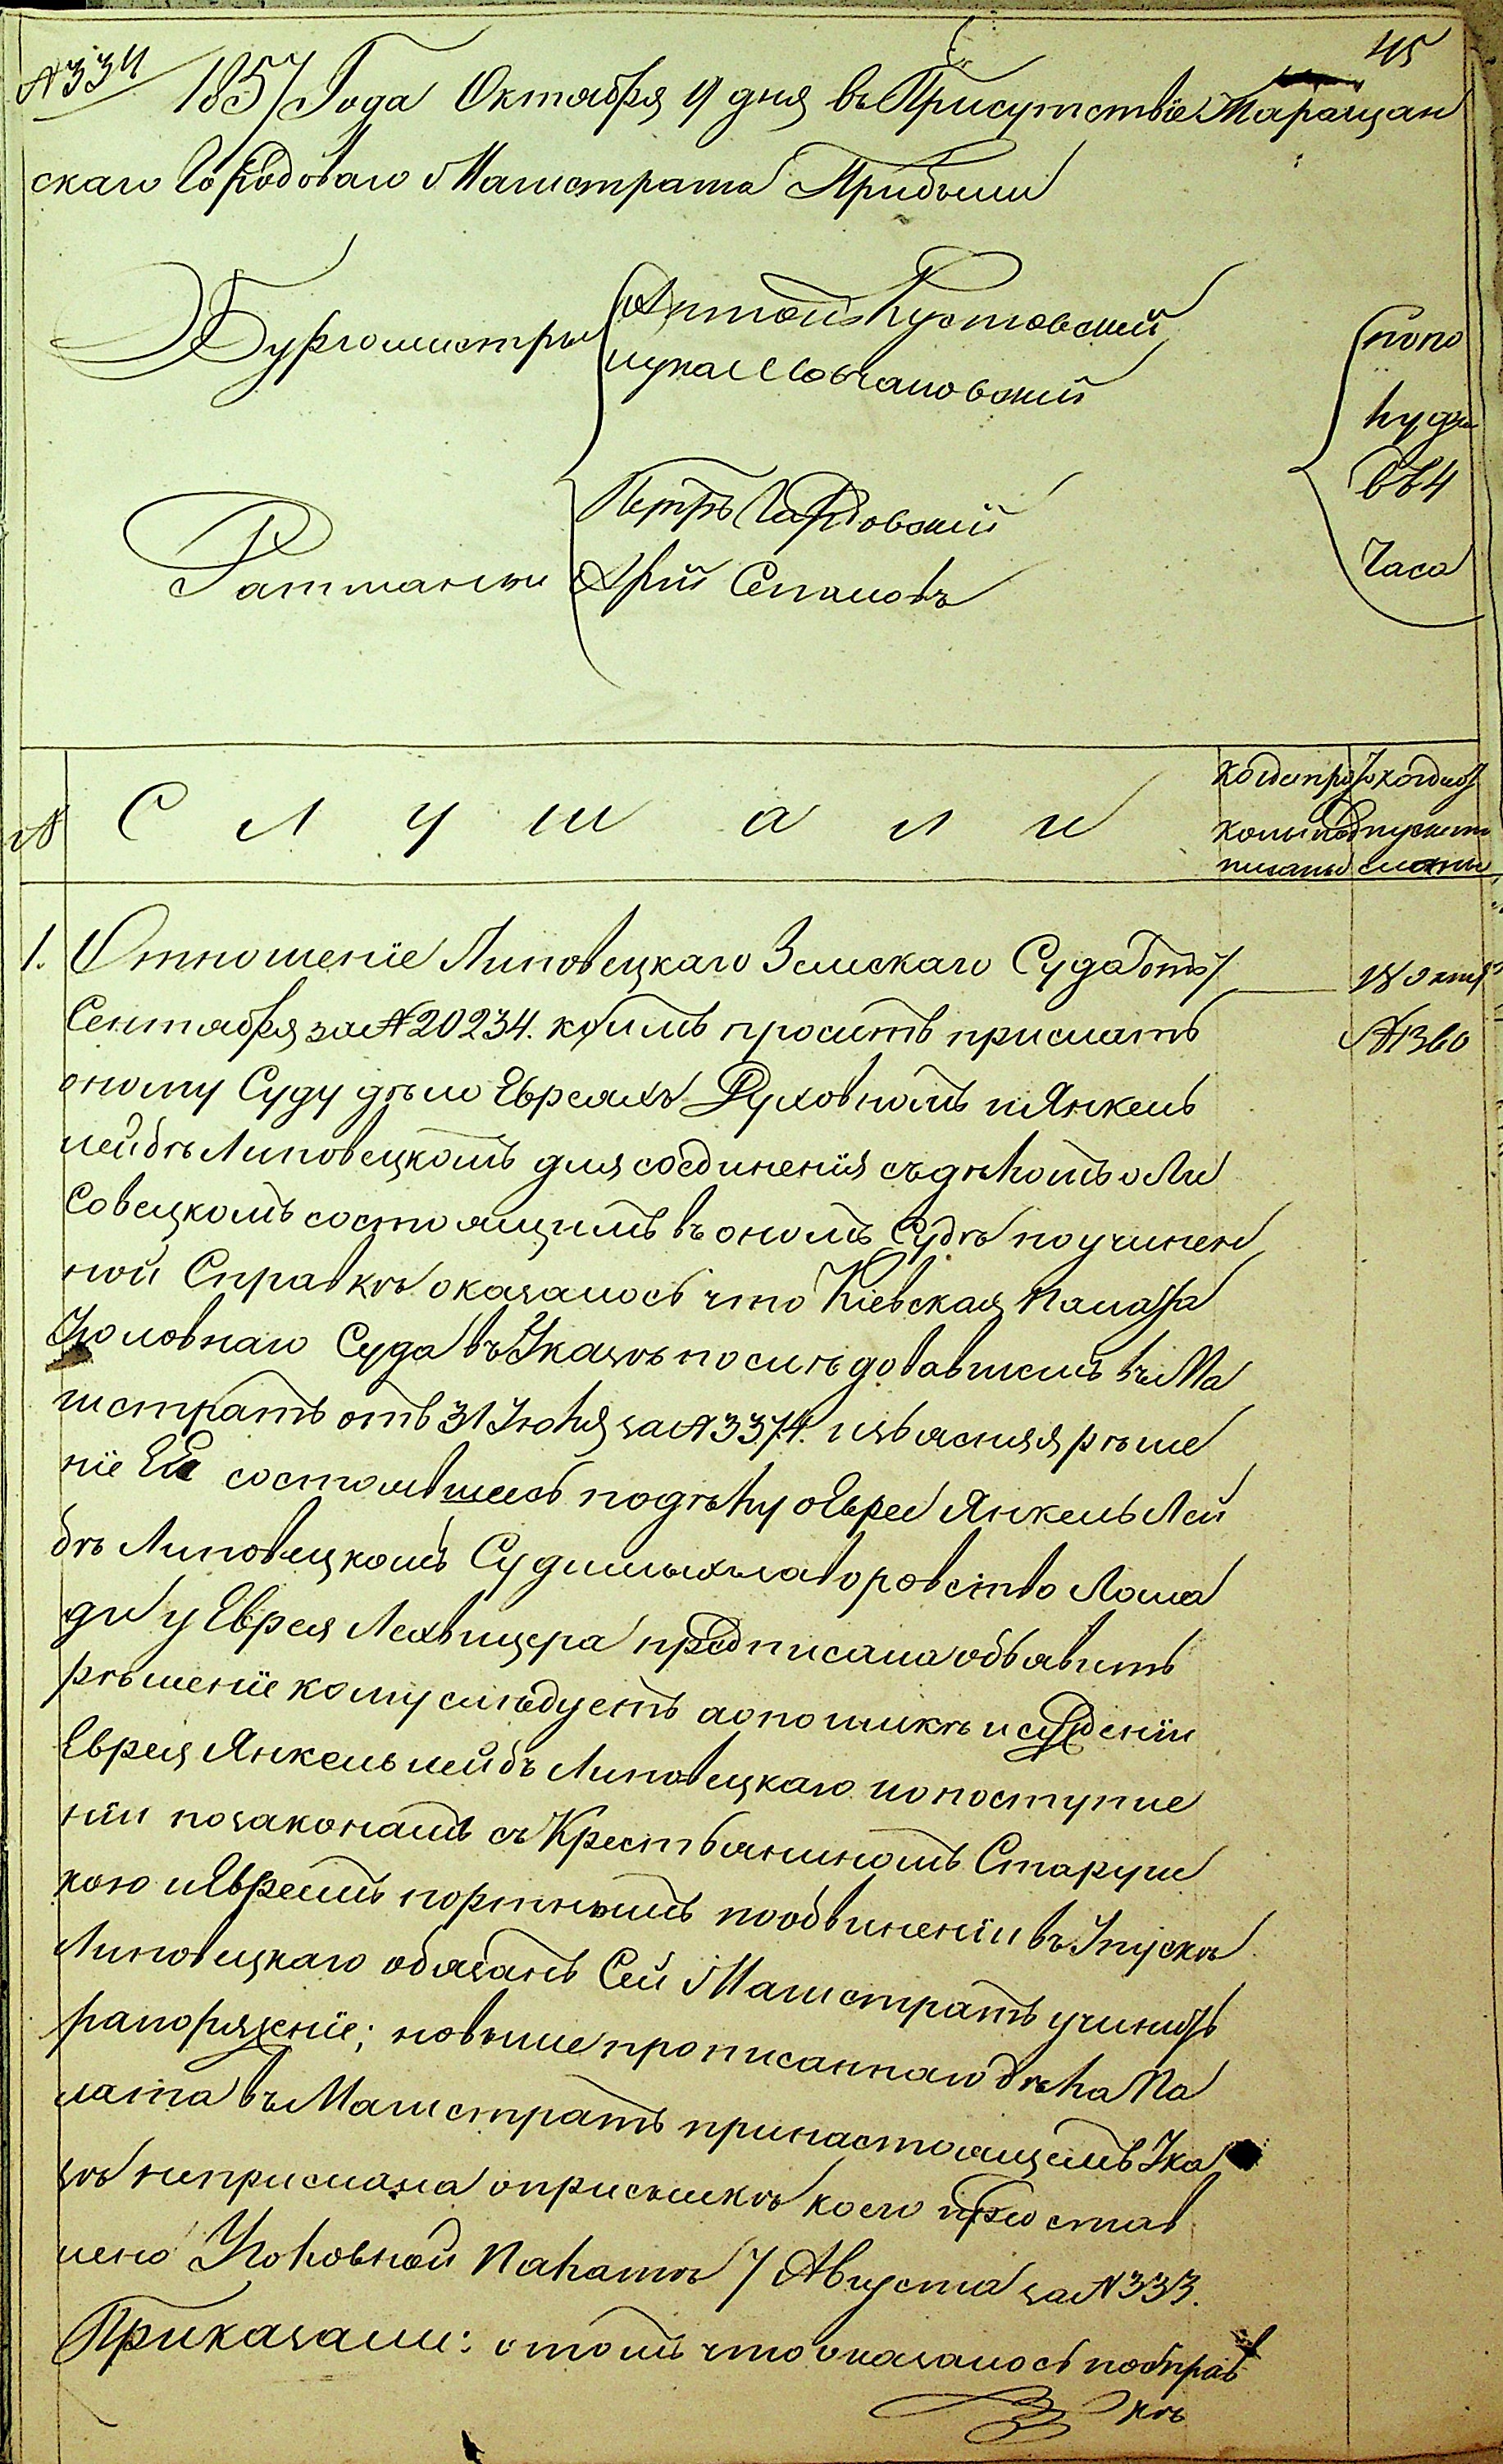 №334
45
1857 Года Октября 9 дня въ Присутствіе Таращан
скаго Городоваго Магистрата Прибыли
Бургомистры
Антонъ Кустовскій
Лука Мочановскій
попо
лудни
въ 4
часа
Ратманы
Петръ
Степановъ
№ Слушали
когда про
токолы подписаны
когда
1. Отношеніе Липовецкаго Земскаго Суда отъ 7
18 окт
Сентября за №20234. коимъ проситъ прислать
№1360
оному Суду дѣло Евреяхъ Духовномъ и Янкель
лейбѣ Липовецкомъ для соединенія съ дѣломъ о Ли
совецкомъ состоящимъ въ ономъ Судѣ по учинен
ной Справкѣ оказалось что Кіевская Палата
Уголовнаго Суда въ Указѣ последовавшемъ въ Ма
гистратъ отъ 31 Іюля за №3374. изъясняя рѣше
ніе Ея состоявшееся по дѣлу о Еврее Янкель Лей
бѣ Липовецкомъ Судимыхъ за воровство Лоша
ди у Еврея предписала объявить
рѣшеніе кому слѣдуетъ а о поимкѣ и сужденіи
Еврея Янкель лейбъ Липовецкаго и о поступле
ніи по законамъ съ Крестьяниномъ Старуш
кою и Евреемъ портнымъ по обвиненіи въ Упускѣ
Липовецкаго обязанъ Сей Магистратъ учинить
рапоряженіе; но выше прописаннаго дѣла Па
лата въ Магистратъ при настоящемъ Ука
зѣ неприслала о присылкѣ коего представ
лено Уголовной Палатѣ 7 Августа за №333.
Приказали: о томъ что оказалось по справ
кѣ